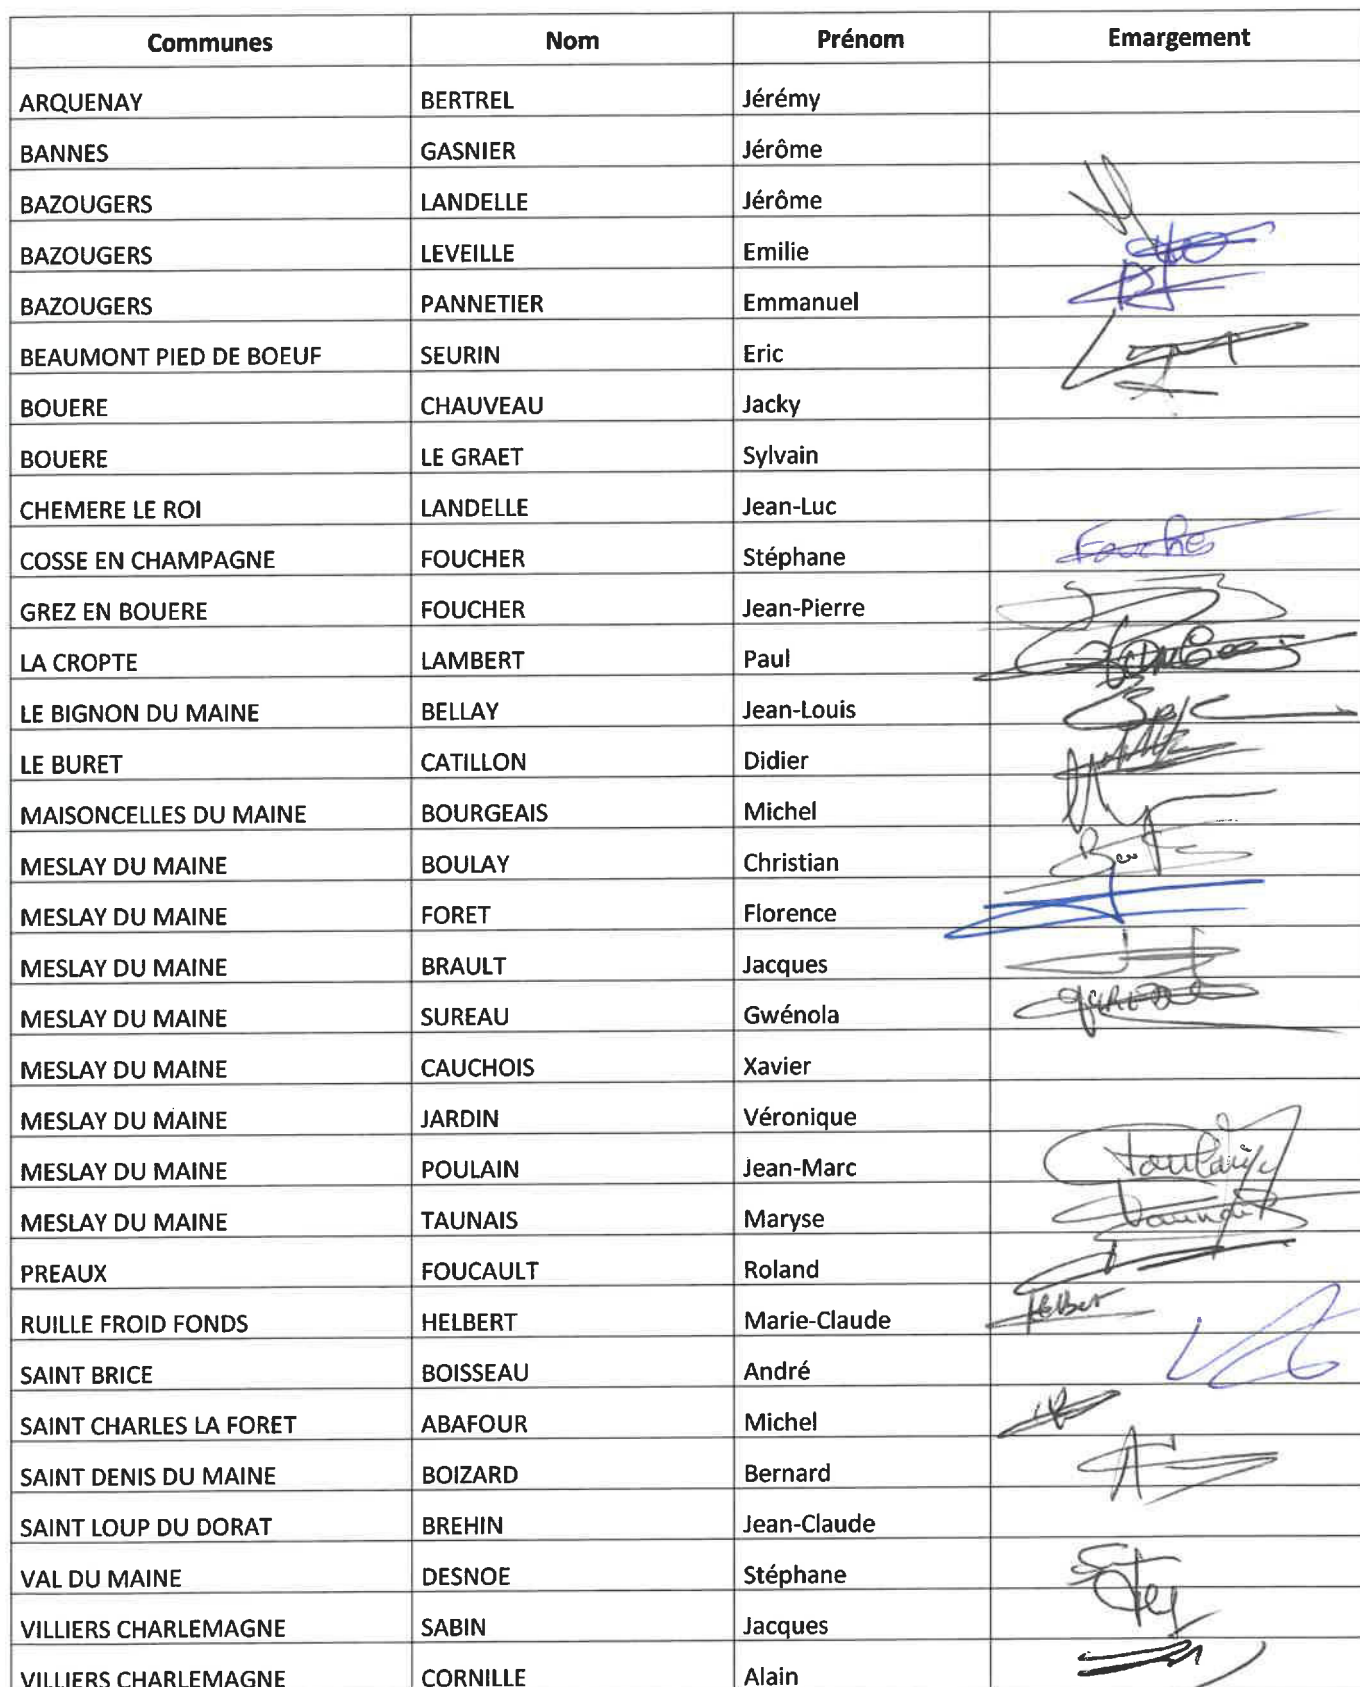 Communes Nom Prénom Emargement
ARQUENAY BERTREL Jérémy
BANNES GASNIER Jérôme
BAZOUGERS LANDELLE Jérôme
BAZOUGERS LEVEILLE Emilie
BAZOUGERS PANNETIER Emmanuel
BEAUMONT PIED DE BOEUF SEURIN Eric
BOUERE CHAUVEAU Jacky
BOUERE LE GRAET Sylvain
CHEMERE LE ROI LANDELLE Jean-Luc
COSSE EN CHAMPAGNE FOUCHER Stéphane
GREZ EN BOUERE FOUCHER Jean-Pierre
LA CROPTE LAMBERT Paul
LE BIGNON DU MAINE BELLAY Jean-Louis
LE BURET CATILLON Didier
MAISONCELLES DU MAINE BOURGEAIS Michel
MESLAY DU MAINE BOULAY Christian
MESLAY DU MAINE FORET Florence
MESLAY DU MAINE BRAULT Jacques
MESLAY DU MAINE SUREAU Gwénola
MESLAY DU MAINE CAUCHOIS Xavier
MESLAY DU MAINE JARDIN Véronique
MESLAY DU MAINE POULAIN Jean-Marc
MESLAY DU MAINE TAUNAIS Maryse
PREAUX FOUCAULT Roland
RUILLE FROID FONDS HELBERT Marie-Claude Helbert
SAINT BRICE BOISSEAU André
SAINT CHARLES LA FORET ABAFOUR Michel
SAINT DENIS DU MAINE BOIZARD Bernard
SAINT LOUP DU DORAT BREHIN Jean-Claude
VAL DU MAINE DESNOE Stéphane
VILLIERS CHARLEMAGNE SABIN Jacques
VILLIERS CHARLEMAGNE CORNILLE Alain